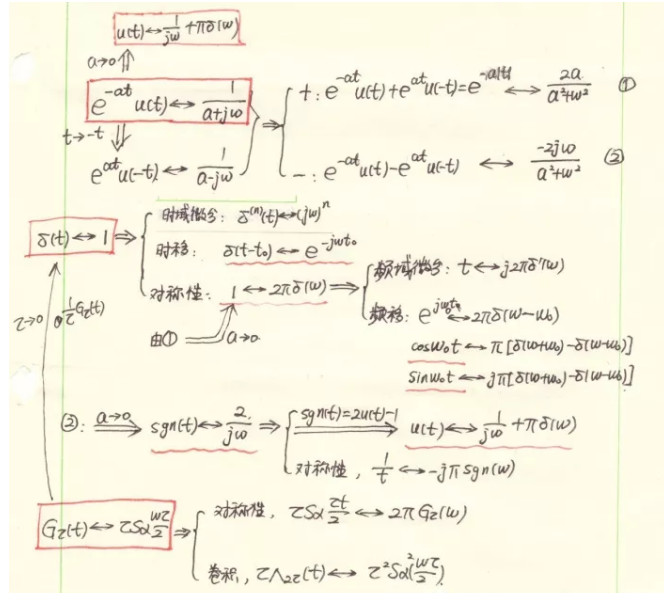 u(t)↔1/jw+πδ(w)
a→0 ⇑
e^{-at}u(t)↔1/(a+jw)
t→-t ⇓
e^{at}u(-t)↔1/(a-jw)
⇒ { +: e^{-at}u(t)+e^{at}u(-t)=e^{-a|t|} ↔ 2a/(a²+w²) ①
-: e^{-at}u(t)-e^{at}u(-t) ↔ -2jw/(a²+w²) ②
δ(t)↔1 ⇒ { 时域微分: δ^{(n)}(t)↔(jw)^n
时移: δ(t-t₀)↔e^{-jwt₀}
对称性: 1↔2πδ(w) ⇒ { 频域微分: t↔j2πδ'(w)
由① ⇒ a→0
频移: e^{jw₀t}↔2πδ(w-w₀)
cosw₀t↔π[δ(w+w₀)-δ(w-w₀)]
sinw₀t↔jπ[δ(w+w₀)-δ(w-w₀)]
τ→0 1/τ Gτ(t)
②: a→0 ⇒ sgn(t)↔2/jw ⇒ { sgn(t)=2u(t)-1 ⇒ u(t)↔1/jw+πδ(w)
对称性, 1/t↔-jπsgn(w)
Gτ(t)↔τSa wτ/2 ⇒ { 对称性, τSa τt/2↔2πGτ(w)
卷积, τΛ₂τ(t)↔τ²Sa²(wτ/2)